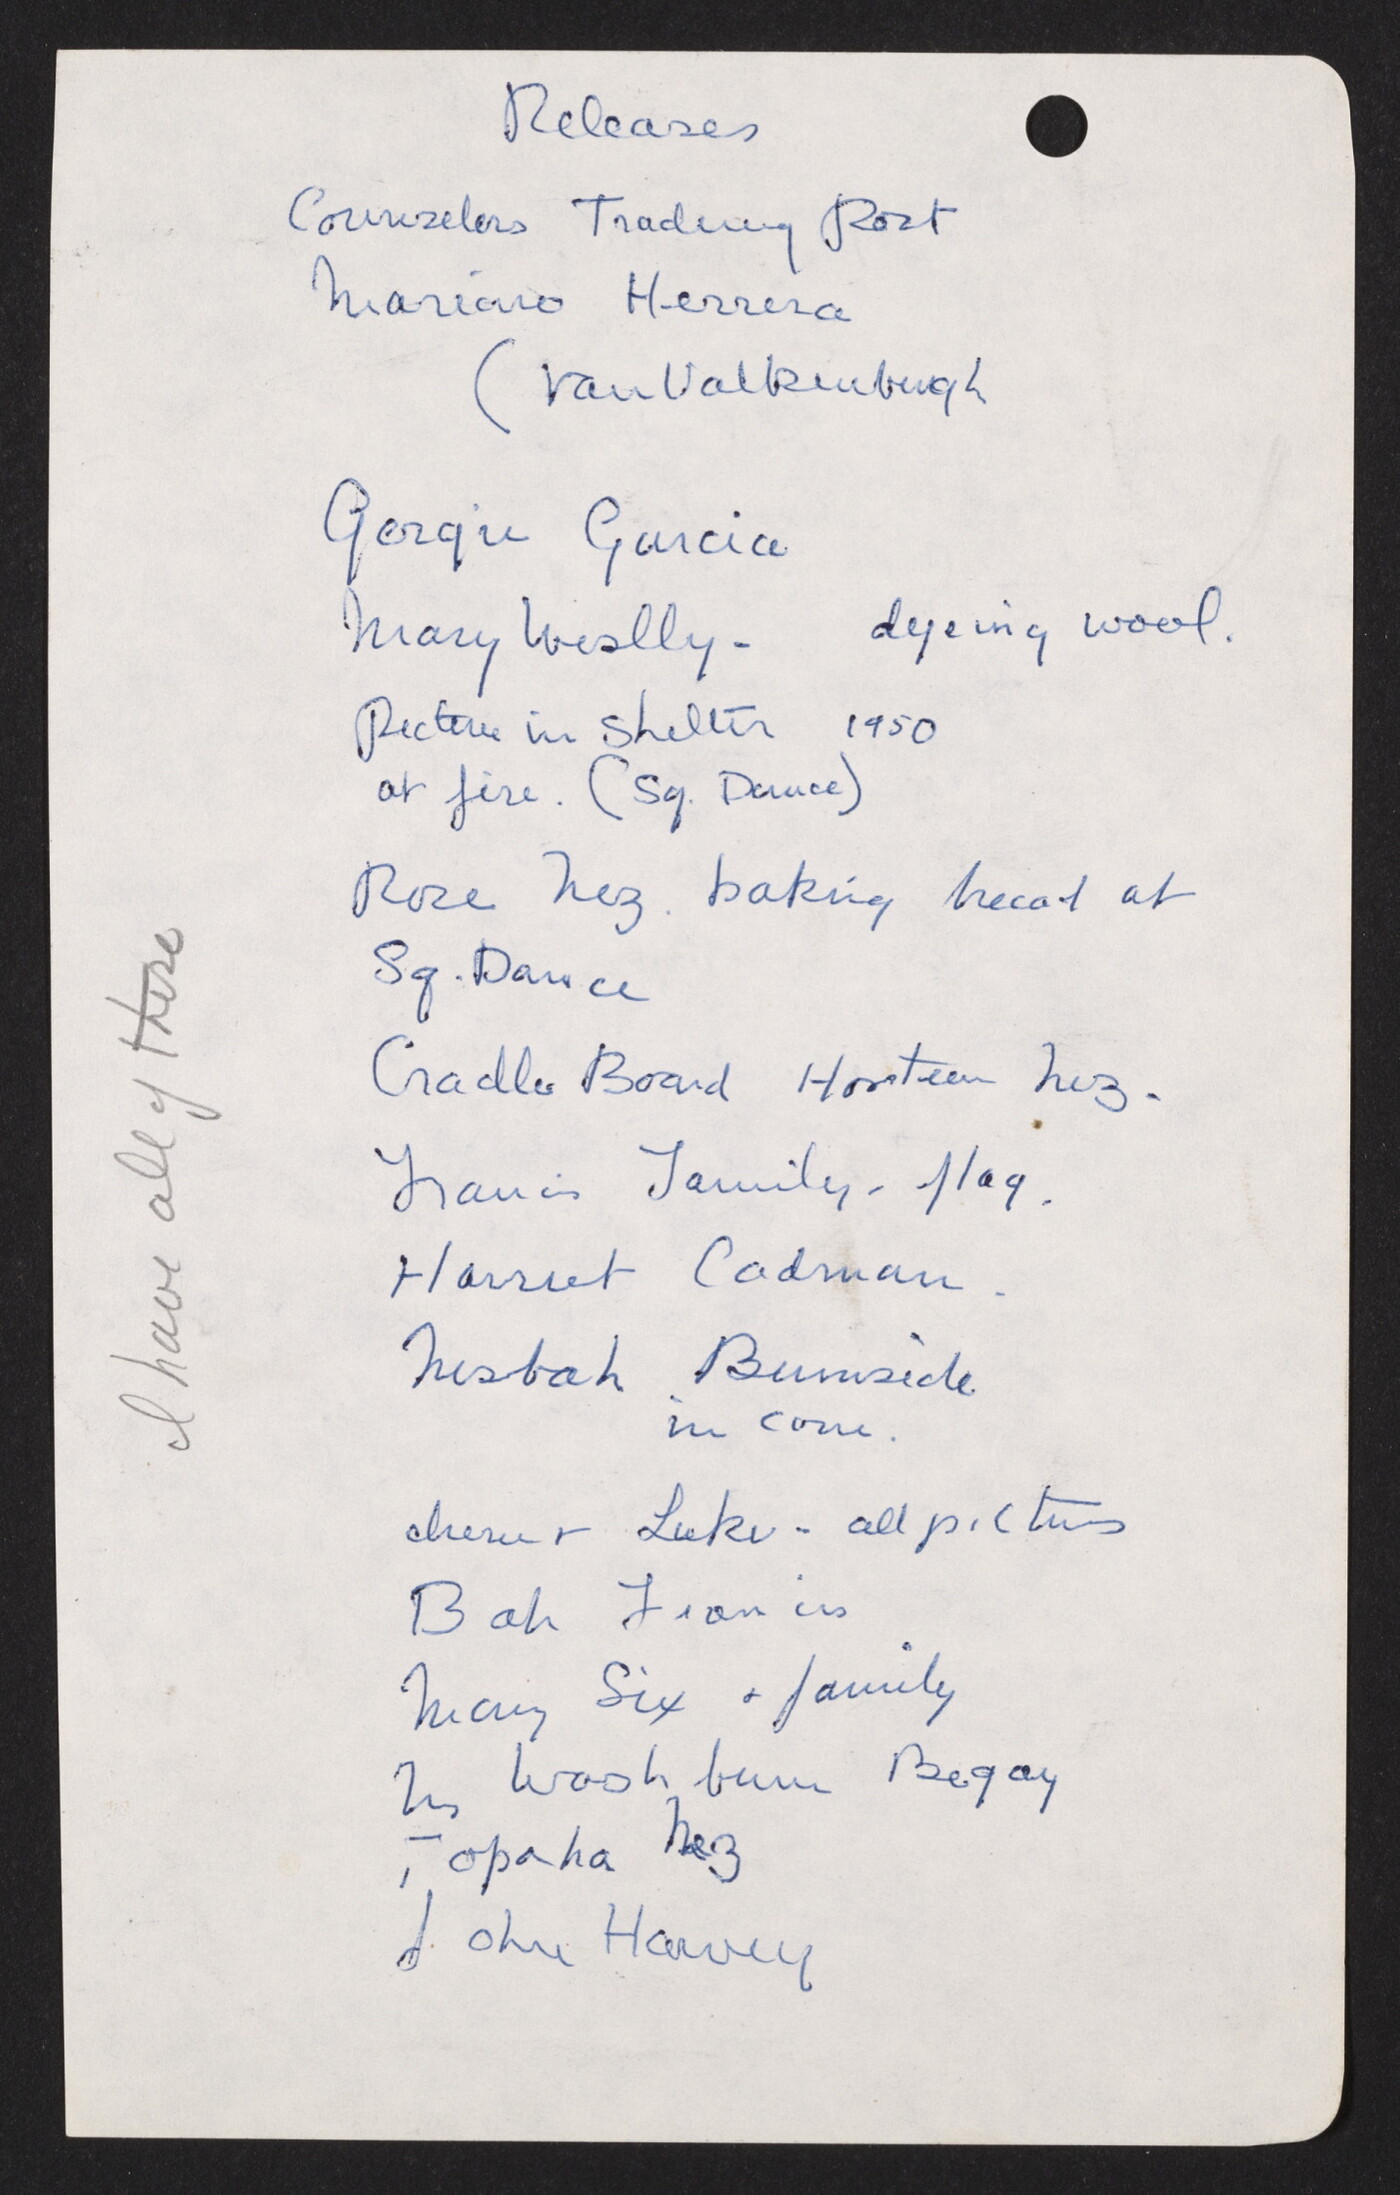 Releases
Counselors Trading Post
Mariano Herrera
(Van Valkenburgh
Gorgie Garcia
Mary Weslly - dyeing wool.
Picture in shelter 1950
at fire. (Sq. Dance)
Rose Nez. baking bread at
Sq. Dance
Cradle Board Hosteen Nez.
Francis Family - flag.
Harriet Cadman.
Nesbah Burnside
in corn.
Luke - all pictures
Bah Francis
Mary Six + family
Mrs Washburn Begay
Topaha Nez
John Harvey
I have all of these